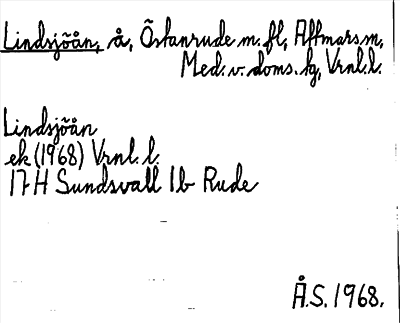 Lindsjöån, å, Östanrude m. fl, Attmars sn,
Med. v. doms. tg, Vrnl. l.
Lindsjöån
ek (1968) Vrnl. l.
17 H Sundsvall 1b Rude
Å.S. 1968.